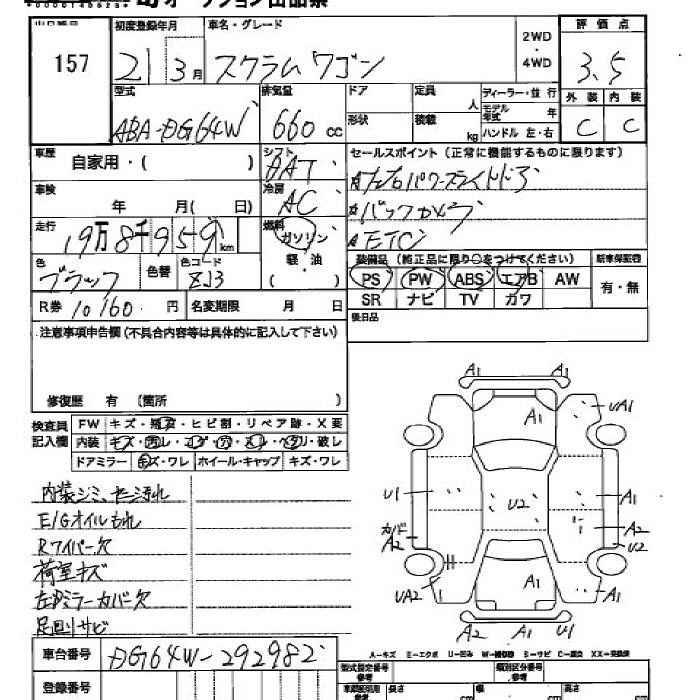 オークション出品票
出品番号 初度登録年月 車名・グレード 2WD・4WD 評価点
157 21 3月 スクラムワゴン 3.5
型式 排気量 ドア 定員 人 ディーラー・並行 外装 内装
ABA-DG64W 660cc 形状 積載 kg モデル年式 年 ハンドル 左・右 C C
車歴 自家用・( ) シフト DAT セールスポイント (正常に機能するものに限ります)
車検 年 月( 日) 冷房 AC 左パワースライドドア
バックカメラ
走行 19万8千959km 燃料 ガソリン 軽・油 ( ) ETC
色 ブラック 色替 色コード ZJ3
装備品 (純正品に限り○をつけてください) 新車保証書
PS PW ABS エアB AW 有・無
SR ナビ TV カワ
R券 10160円 名変期限 月 日 後日品
注意事項申告欄(不具合内容等は具体的に記入して下さい)
修復歴 有 (箇所 )
検査員記入欄 FW キズ・飛石・ヒビ割・リペア跡・X要
内装 キズ・汚レ・コゲ・穴・スレ・ヘタリ・破レ
ドアミラー キズ・ワレ ホイール・キャップ キズ・ワレ
内装シミ、ヤニ汚れ
E/Gオイルもれ
Rワイパー欠
荷室キズ
左ドアミラーカバー欠
足回りサビ
A1 A1
A1 UA1
U1 U2 A1
カバ A2 A2
U2
UA2 A1 A1
A2 U1
A-キズ E-エクボ U-凹み W-補修跡 S-サビ C-腐食 XX-交換済
車台番号 DG64W-292982
型式指定番号 参考 類別区分番号 参考
登録番号 車庫証明用 参考 長さ cm 幅 cm 高さ cm